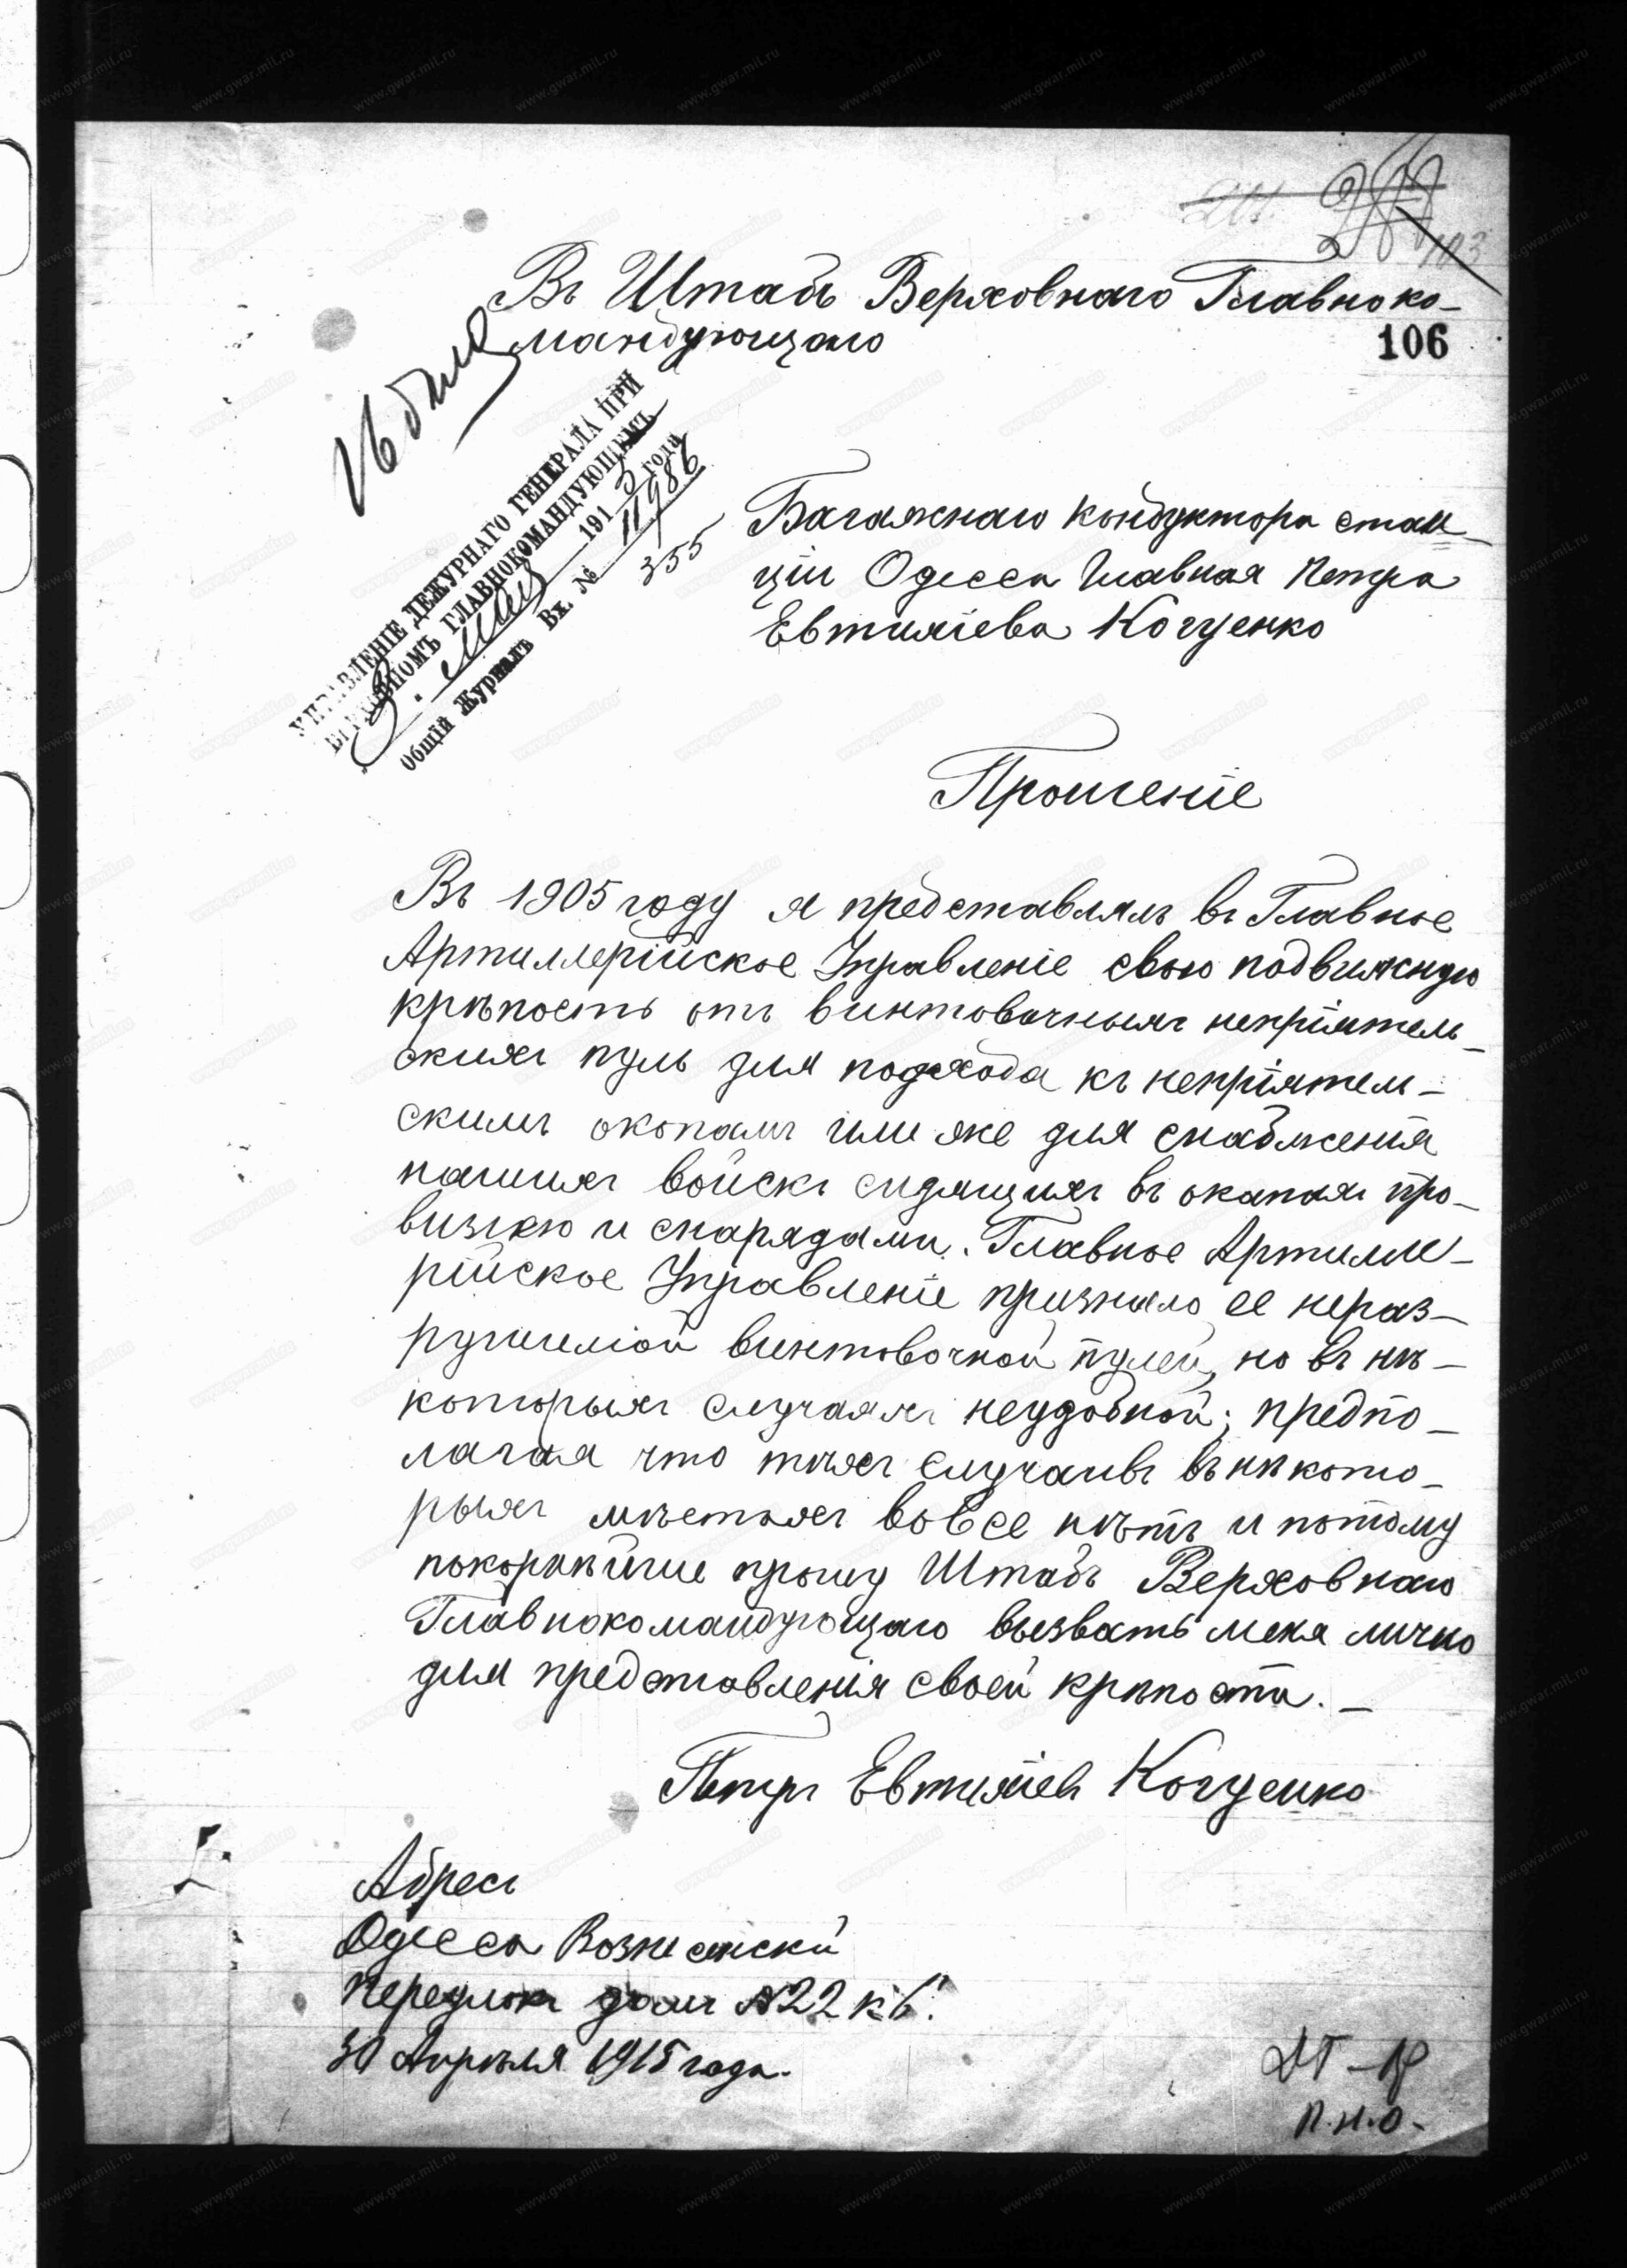 103
Въ Штабъ Верховнаго Главноко-
мандующаго
106
УПРАВЛЕНІЕ ДЕЖУРНАГО ГЕНЕРАЛА ПРИ
ВЕРХОВНОМЪ ГЛАВНОКОМАНДУЮЩЕМЪ
3. Мая 1915 года
Общій Журналъ Вх. № 11986
355
Багажнаго кондуктора стан-
ціи Одесса Главная Петра
Евтихіева Когуенко
Прошеніе
Въ 1905 году я представлялъ въ Главное
Артиллерійское Управленіе свою подвижную
крѣпость отъ винтовочныхъ непріятель-
скихъ пуль для подхода къ непріятель-
скимъ окопамъ или же для снабженія
нашихъ войскъ сидящихъ въ окопахъ про-
визіею и снарядами. Главное Артилле-
рійское Управленіе признало ее нераз-
рушимой винтовочной пулей, но въ нѣ-
которыхъ случаяхъ неудобной; предпо-
лагая что тѣхъ случаевъ въ нѣкото-
рыхъ мѣстахъ вовсе нѣтъ и потому
покорнѣйше прошу Штабъ Верховнаго
Главнокомандующаго вызвать меня лично
для представленія своей крѣпости. —
Петръ Евтихіевъ Когуенко
Адресъ
Одесса Вознесенскій
переулокъ домъ №22 к 6.
30 Апрѣля 1915 года.